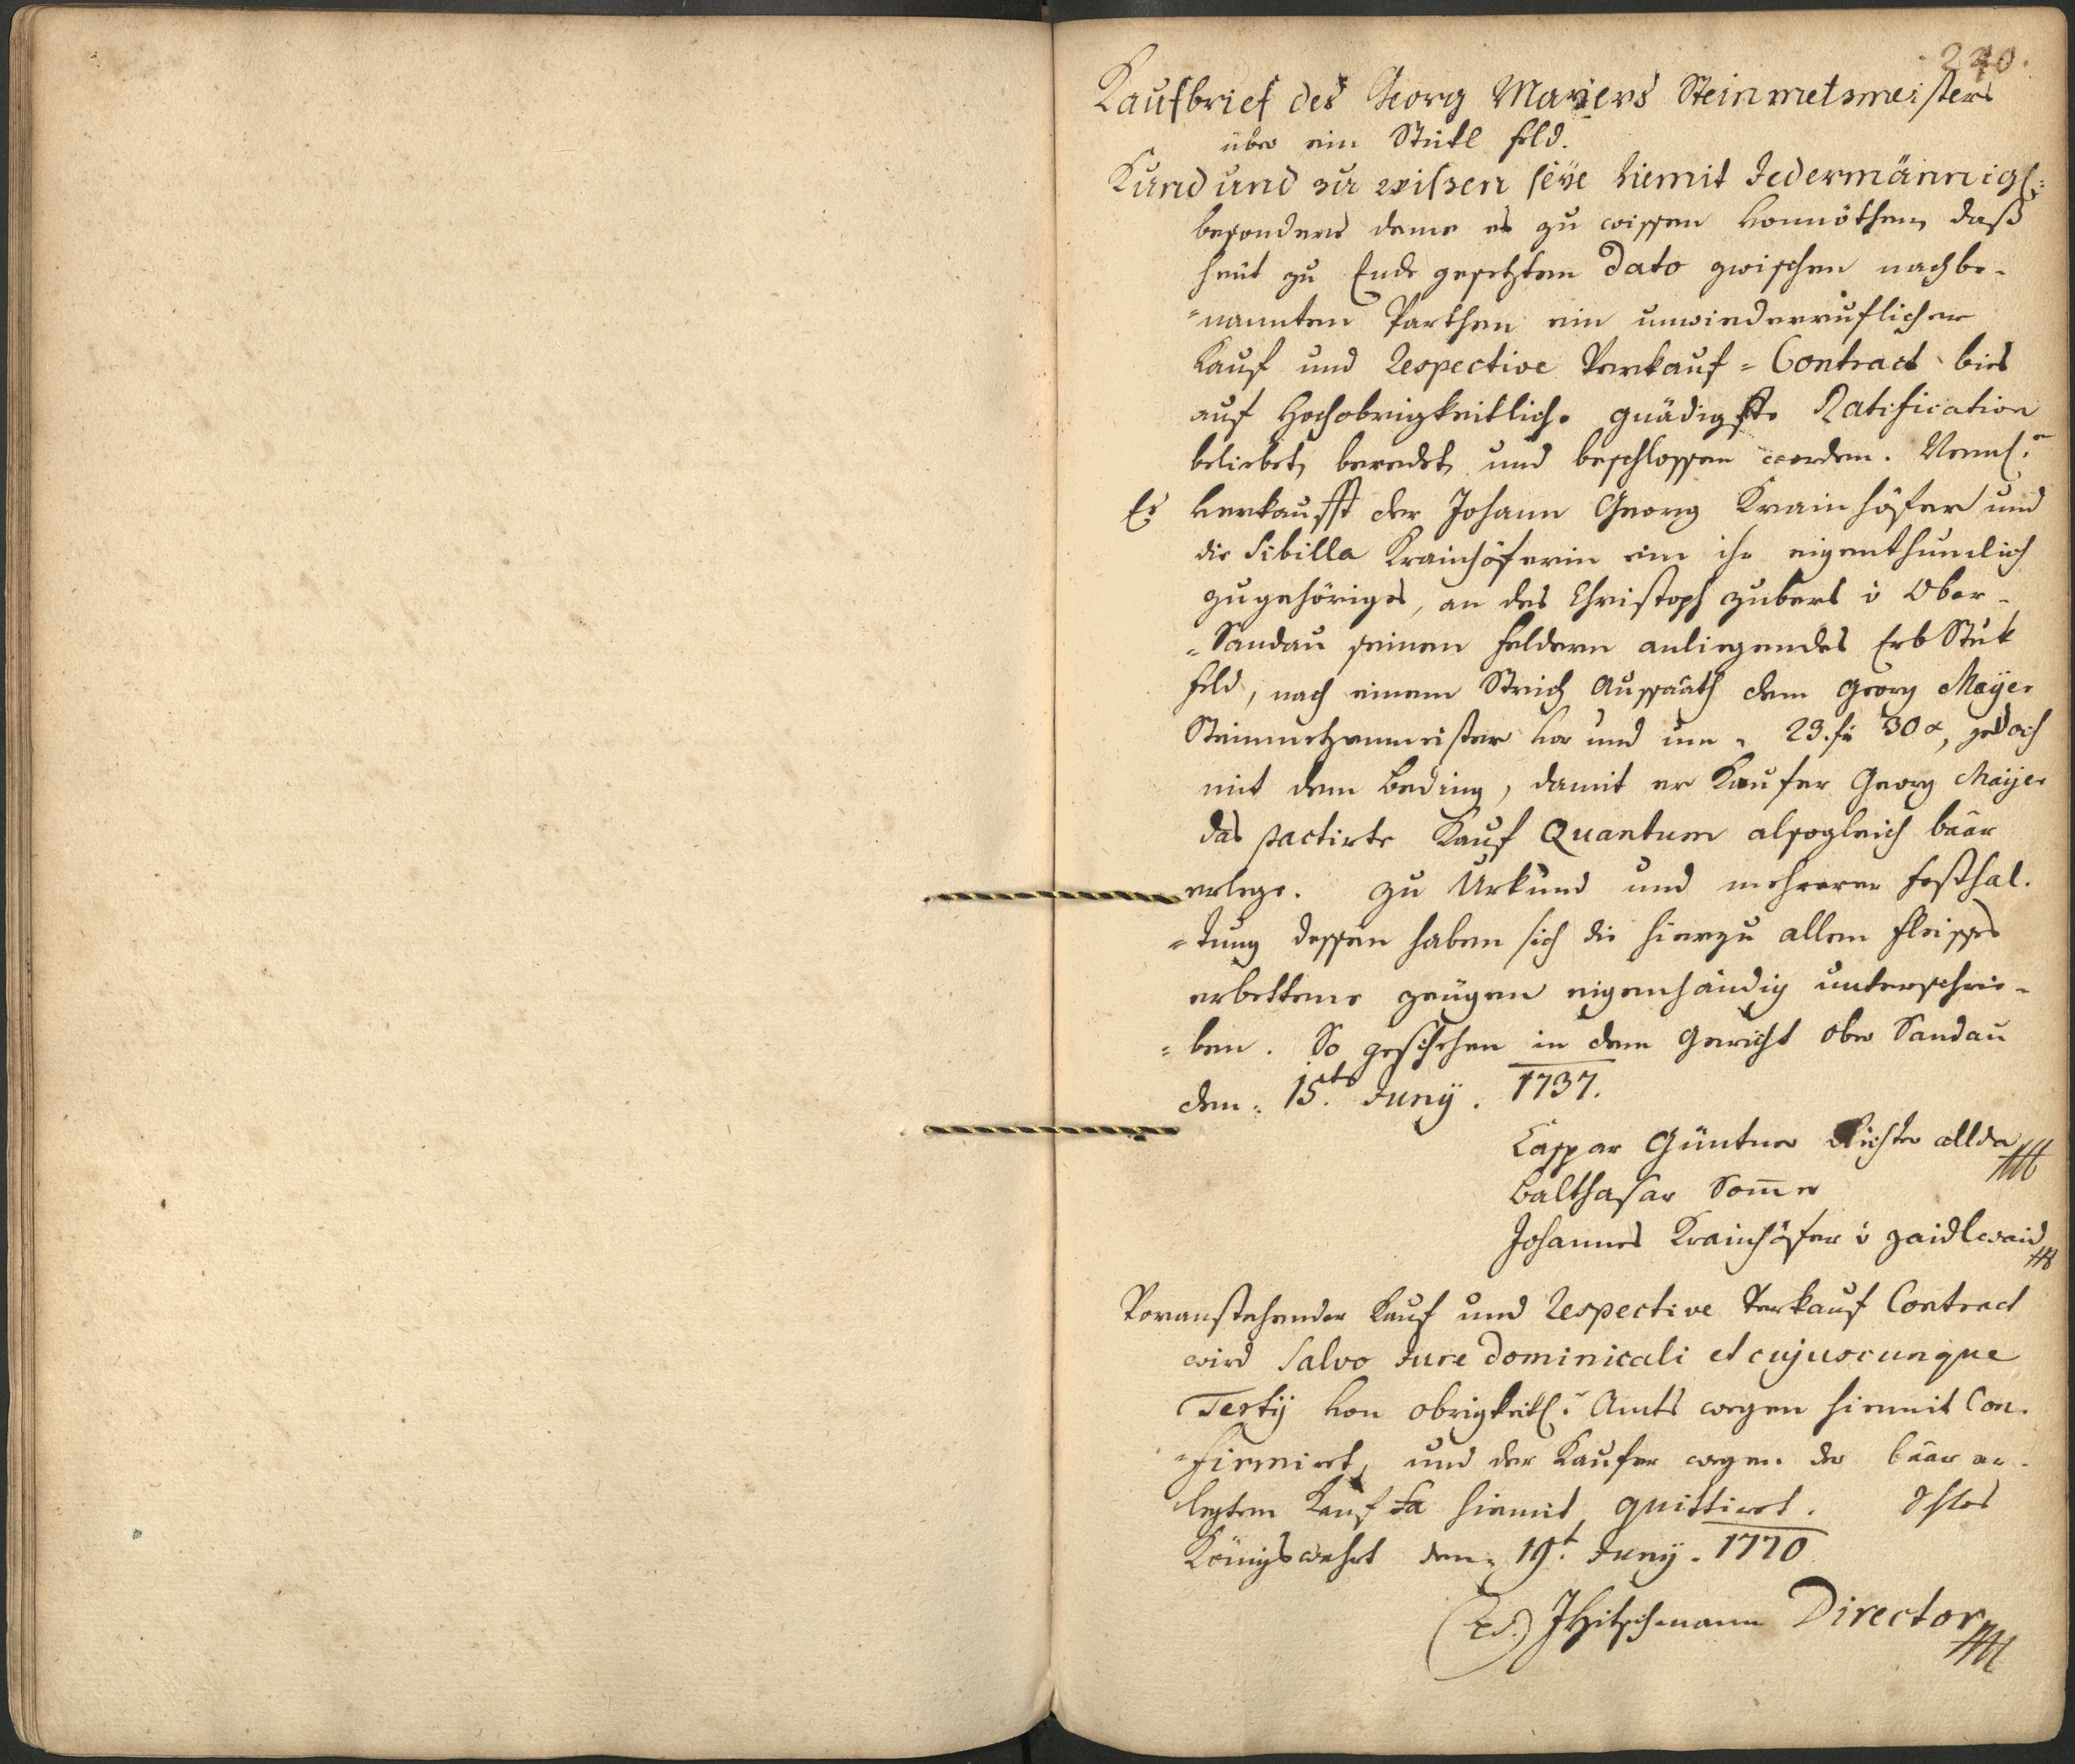 240.
Kaufbrief des Georg Mayers Steinmetsmeisters
über ein Stükl feld.
Kund und zu wißen seÿe hiemit Jedermännigl:
besonders deme es zu wissen vonnöthen, daß
heüt zu Ende gesetztem Dato zwischen nachbe-
=nannten Parthen ein unwiederruflicher
Kauf und Respective Verkauf = Contract bies
auf Hochobrigkeitliche gnädigste Ratification
beliebet, beredet, und beschlossen worden. Neml:
Es verkaufft der Johann Georg Krainhöfer und
die Sibilla Krainhöferin ein ihr eigenthumlich
zugehöriges, an des Christoph Zuberl v Ober-
=Sandau seinen feldern anliegendes Erb Stuk
feld, nach einem Strich Aussaath dem Georg Maÿer
Steinmetzenmeister vor und um 23. fr 30 x, jedoch
mit dem Beding, damit er Kaufer Georg Maÿer
das pactirte Kauf Quantum alsogleich baar
erlege. Zu Urkund und mehrerer festhal.
=tung dessen haben sich die hierzu allen fleisses
erbettene zeügen eigenhändig unterschrie-
=ben. So geschehen in dem Gericht Ober Sandau
den 15t. Junÿ. 1737.
Caspar Güntner Richter allda
Balthasar Som̄er
Johannes Krainhöfer v Zaidlwaid
Voranstehender Kauf und Respective Verkauf Contract
wird Salvo Jure dominicali et cujuscunque
Tertÿ von obrigkeitl: Amts wegen hiemit Con.
=firmirt, und der Kaufer wegen der baar er-
legten Kauf Sa hiemit quittiret. Schlos
Königswahrt den 19t. Junÿ. 1770
(LS.) JHitschmann Director